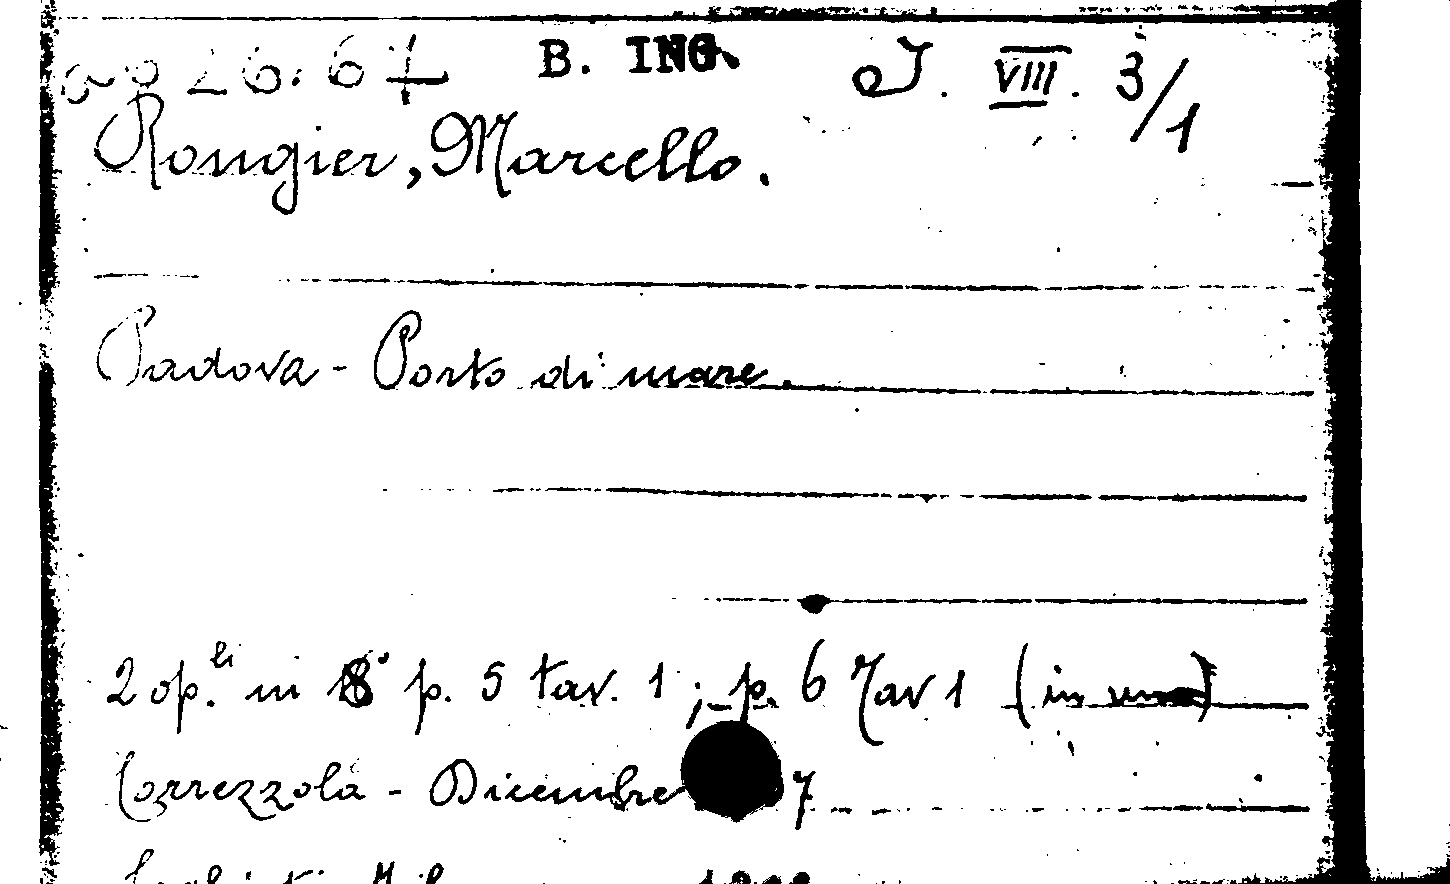 26.67 B. ING. J. VIII. 3/1
Rongier, Marcello.
Padova - Porto di mare.
2 op.li in 8° p. 5 tav. 1; p. 6 Tav 1 (in uno)
Correzzola - Dicembre 7